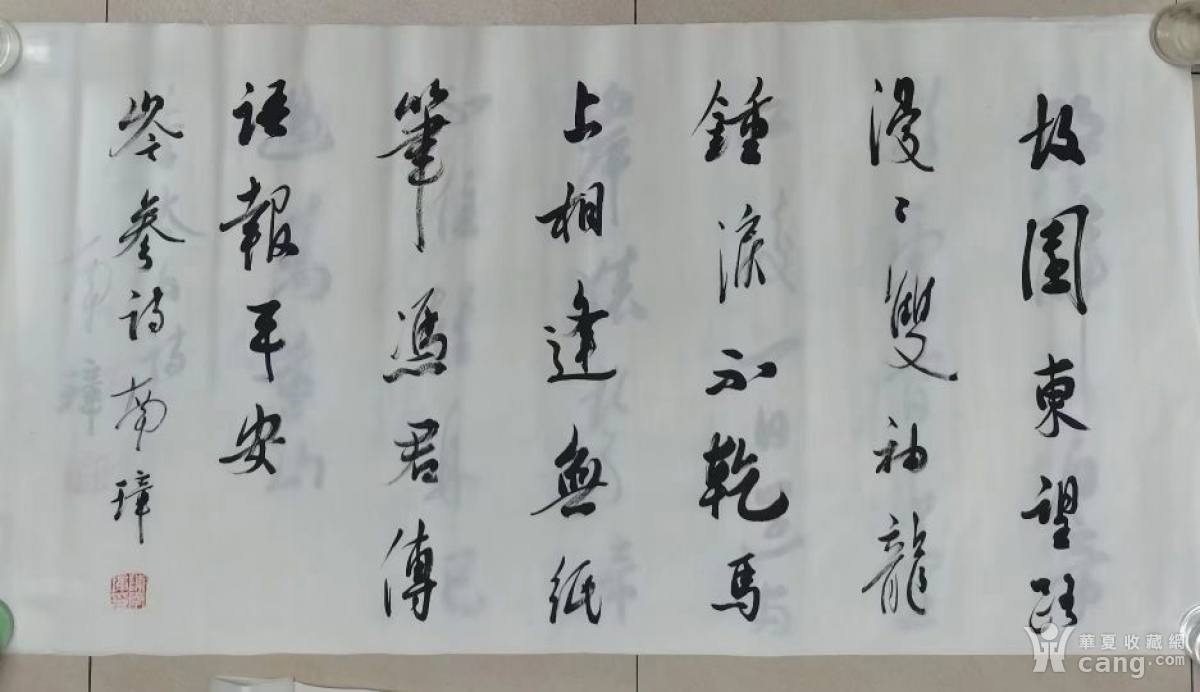 故園東望路
漫〻雙袖龍
鍾淚不乾馬
上相逢無紙
筆馮君傳
語報平安
岑參詩 南璋
華夏收藏網
cang.com